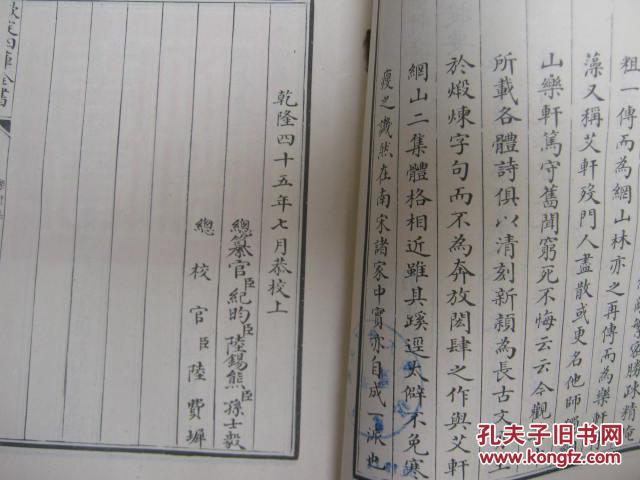 勝疎精
粗一傳而為網山林亦之再傳而為樂軒
藻又稱艾軒歿門人盡散或更名他師
山樂軒篤守舊聞窮死不悔云云今觀
所載各體詩俱以清刻新穎為長古文
於煅煉字句而不為奔放閎肆之作與艾軒
網山二集體格相近雖其蹊逕太僻不免寒
瘦之譏然在南宋諸家中實亦自成一派也
乾隆四十五年七月恭校上
總纂官臣紀昀臣陸錫熊臣孫士毅
總校官臣陸費墀
欽定四庫全書
孔夫子旧书网
KONGFZ.COM